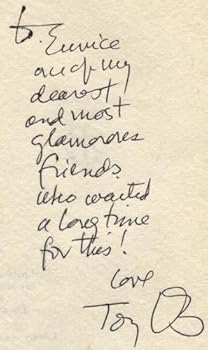 to Eunice
one of my
dearest
and most
glamorous
friends
who waited
a long time
for this!
love
Tony